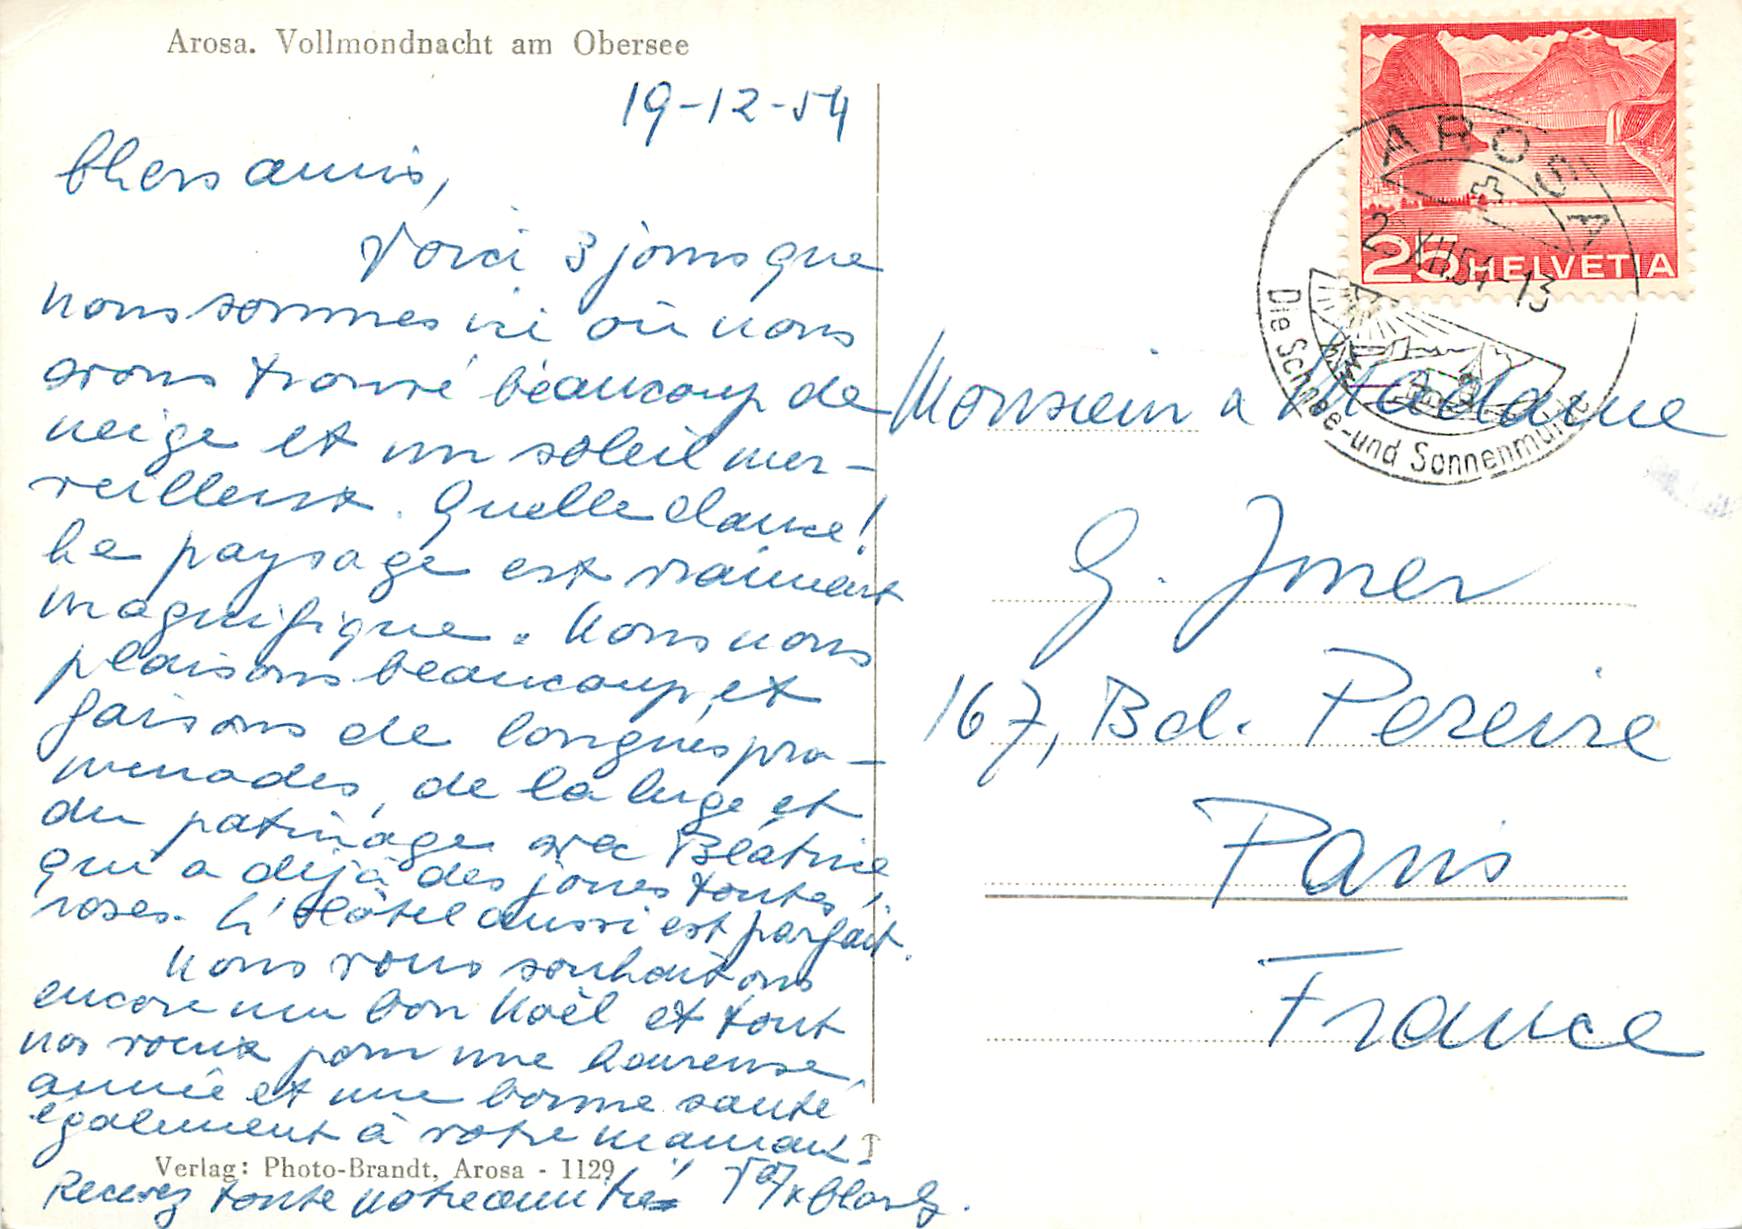 Arosa. Vollmondnacht am Obersee
19-12-54
Chers amis,
Voici 3 jours que
nous sommes ici où nous
avons trouvé beaucoup de
neige et un soleil mer-
veilleux. Quelle chance!
Le paysage est vraiment
magnifique. Nous nous
plaisons beaucoup et
faisons de longues pro-
menades, de la luge et
du patinage avec Béatrice
qui a déjà des joues toutes
roses. L'Hôtel aussi est parfait.
Nous vous souhaitons
encore un bon Noël et tout
nos voeux pour une heureuse
année et une bonne santé
également à votre maman!
Recevez toute notre amitié
Verlag: Photo-Brandt, Arosa - 1129
HELVETIA
25
AROSA
XII.54-13
Die Schnee- und Sonnenmulde
Monsieur & Madame
G.
167, Bd. Pereire
Paris
France